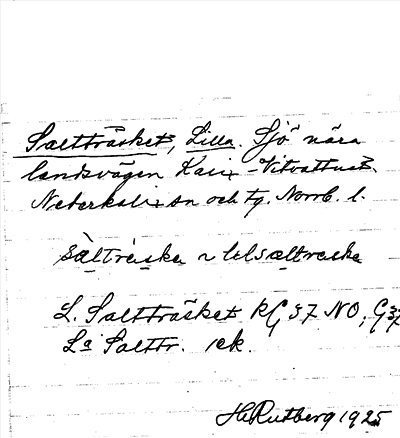 Saltträsket, Lilla. Sjö nära
landsvägen Kalix - Vitvattnet.
Nederkalix sn och tg. Norrb. l.
sàltrèska ~ lılsæltræska
L. Saltträsket RG 37 NO, G37
La Salttr. ek.
H. Rutberg 1925